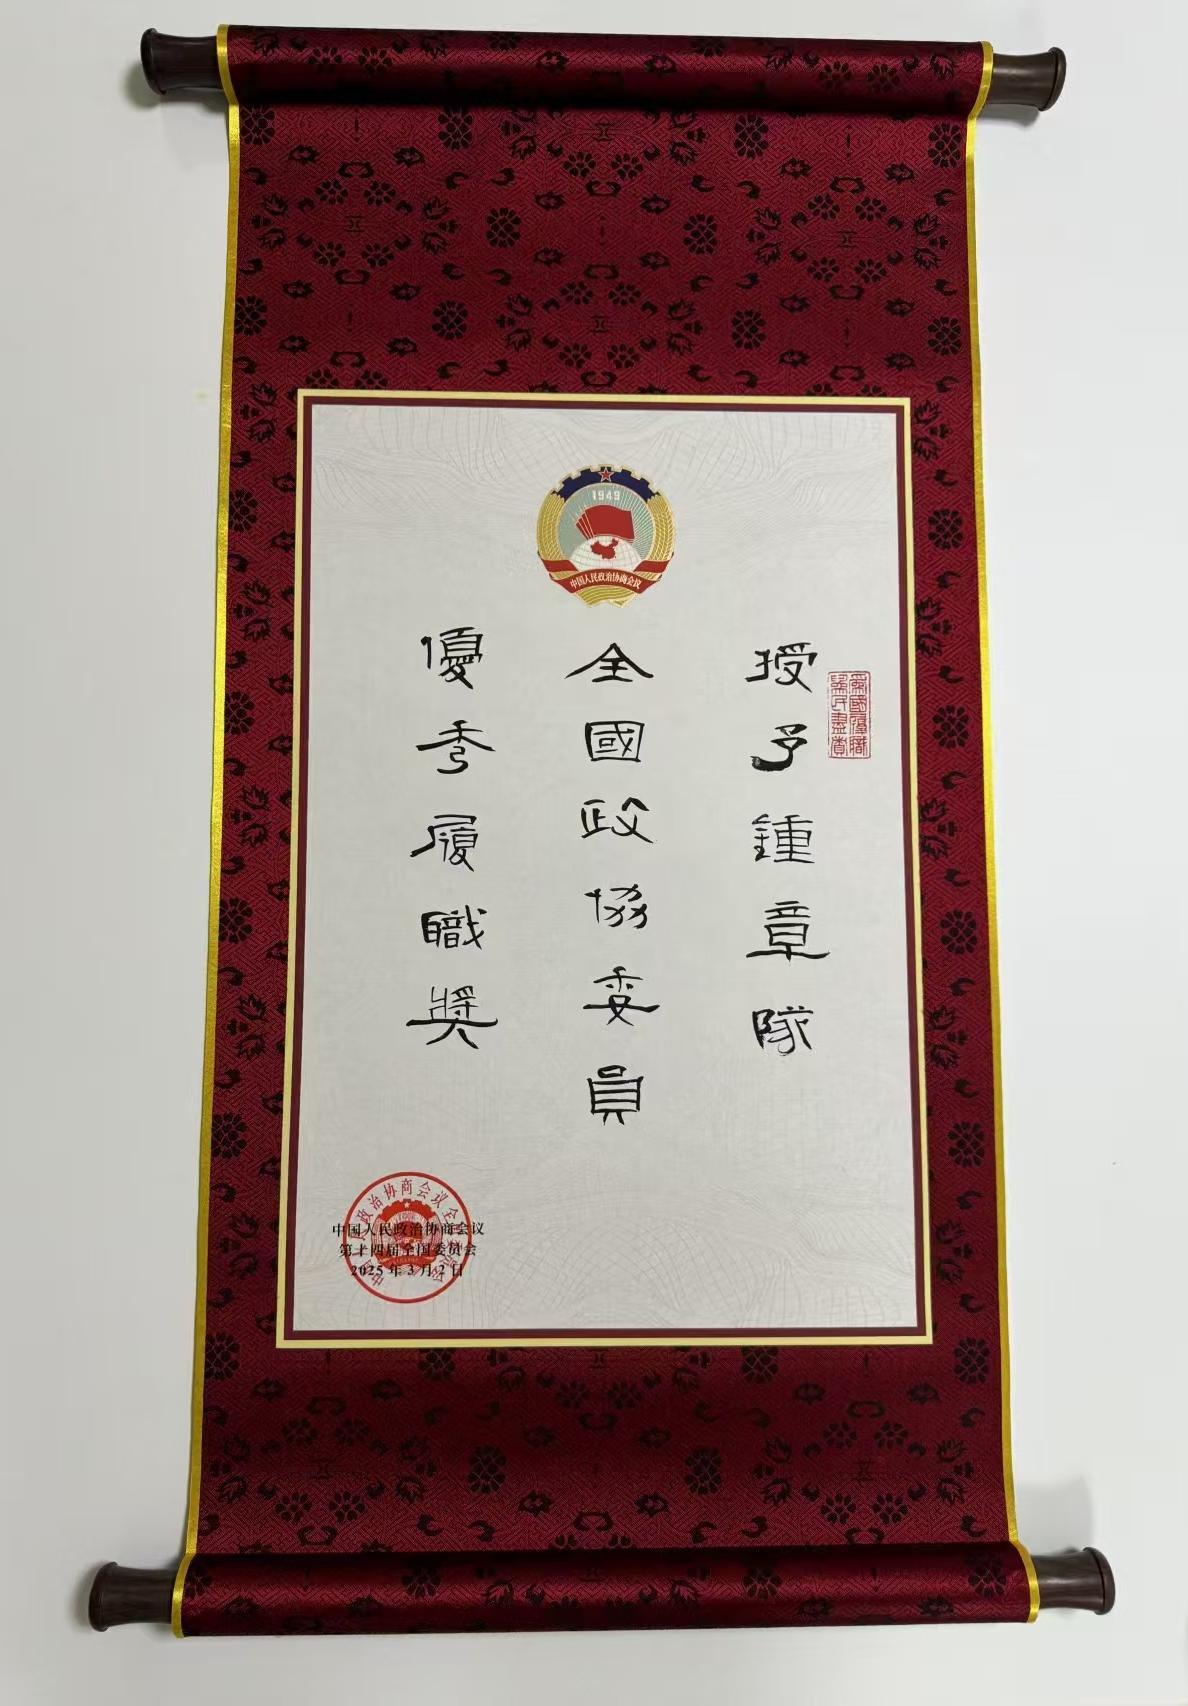 1949
中国人民政治协商会议
授予鍾章隊
為國履職
為民盡責
全國政協委員
優秀履職獎
中国人民政治协商会议
第十四届全国委员会
2025年3月2日